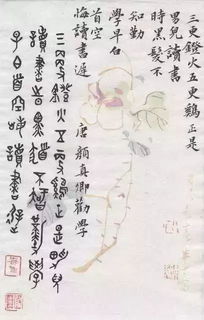 三更鐙火五更鷄正是
男兒讀書
時黑髮不
知勤
學早白
首方
悔讀書遲
唐 顏真卿勸學
三更鐙火五更鷄正是男兒
讀書時黑髮不知勤早學
白首方悔讀書遲